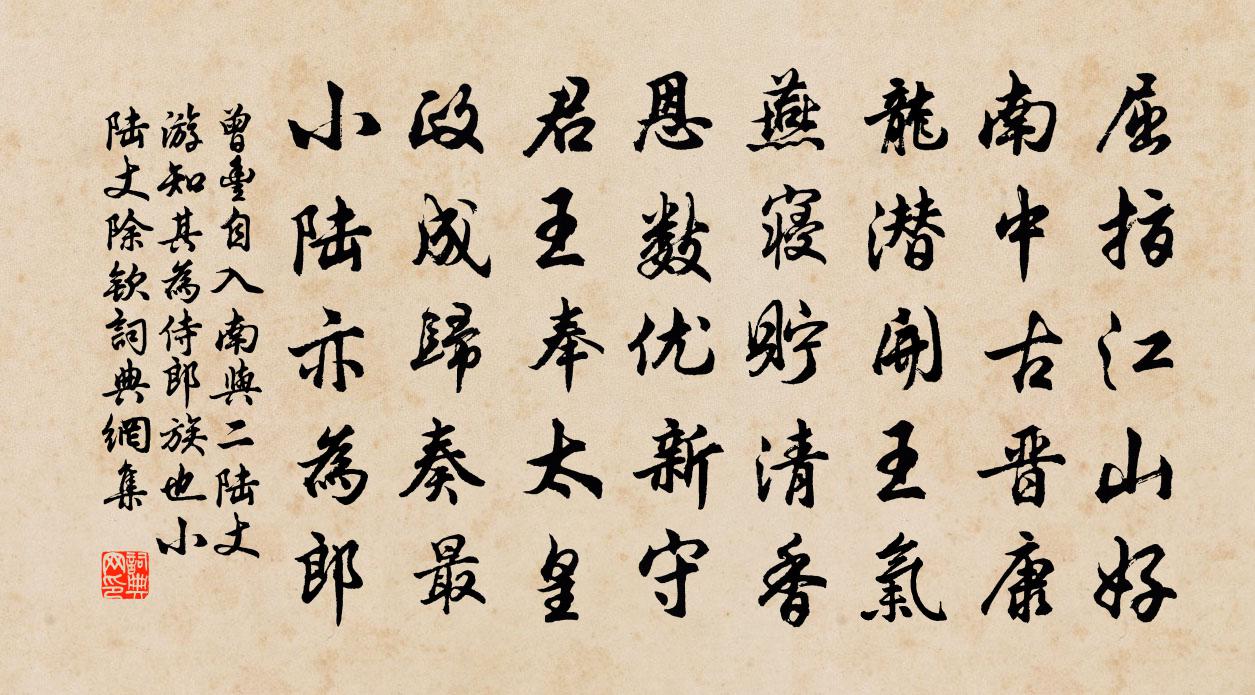 屈指江山好
南中古晋康
龍潜開王氣
燕寝貯清香
恩數优新守
君王奉太皇
政成歸奏最
小陆亦為郎
曾豐自入南與二陆丈
游知其為侍郎族也小
陆丈除欽詞典網集
詞典网印